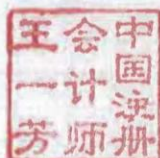 中国注册
会计师
王一芳